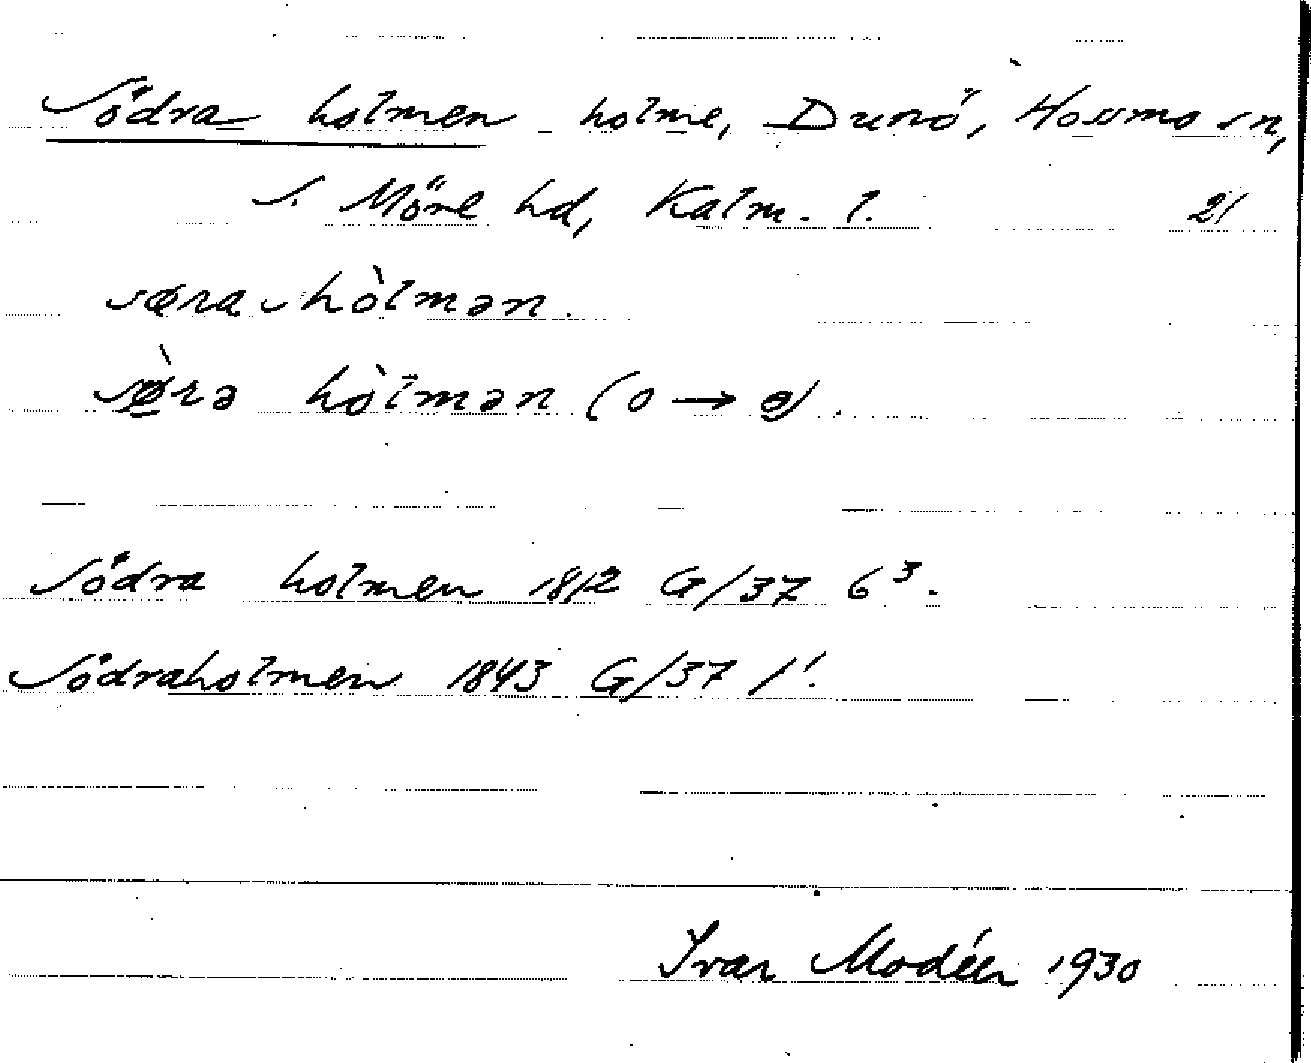 Södra holmen holme, Dunö, Hossmo sn,
S. Möre hd, Kalm. l. 21
søra hòlmən.
sø̀rə hòlmən (o → ə).
Södra holmen 1812 G/37 6³.
Södraholmen 1843 G/37 1¹.
Ivar Modéer 1930